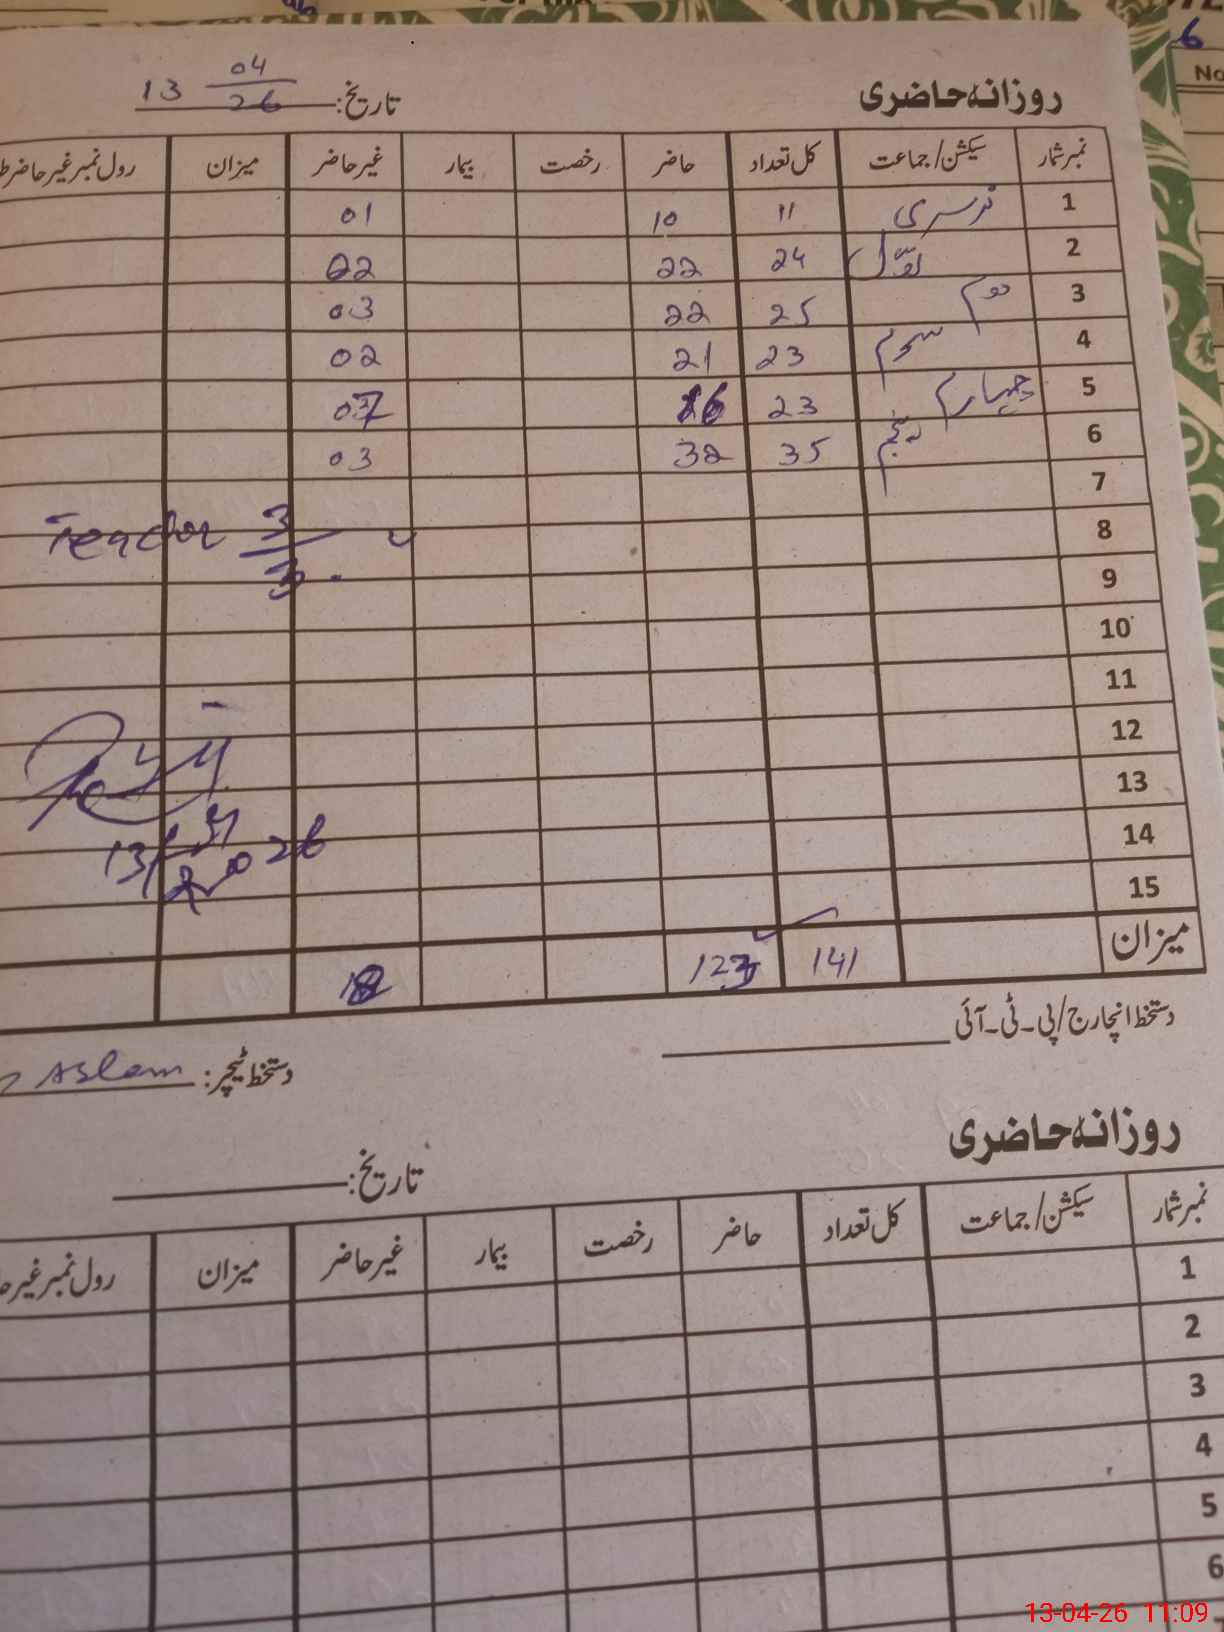 روزانہ حاضری تاریخ: 13 04/26
نمبر شمار سیکشن/جماعت کل تعداد حاضر رخصت بیمار غیر حاضر میزان رول نمبر غیر حاضر
1 نرسری 11 10 01
2 اوّل 24 22 02
3 دوم 25 22 03
4 سوم 23 21 02
5 چہارم 23 16 07
6 پنجم 35 32 03
7
8 Teacher 3/3
9
10
11
12
13
14 13/ 2026
15
میزان 141 123 18
دستخط انچارج/پی۔ٹی۔آئی
دستخط ٹیچر: Aslam
روزانہ حاضری
تاریخ:
نمبر شمار سیکشن/جماعت کل تعداد حاضر رخصت بیمار غیر حاضر میزان رول نمبر غیر
1
2
3
4
5
6
13-04-26 11:09